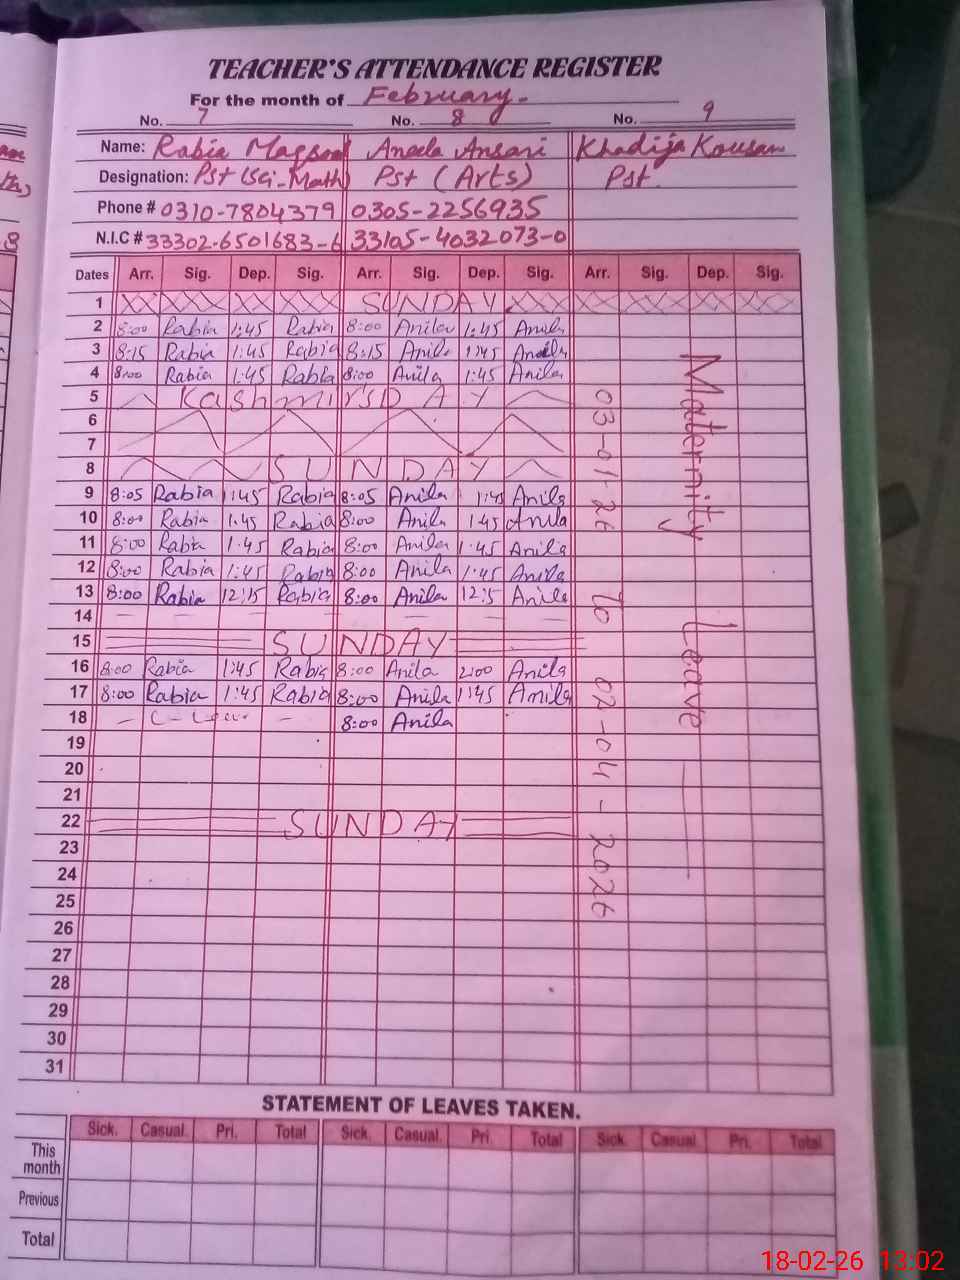 TEACHER'S ATTENDANCE REGISTER
For the month of February.
No. 7 No. 8 No. 9
Name: Rabia Maqsood Aneela Ansari Khadija Kousar
Designation: Pst (Sci-Math) Pst (Arts) Pst.
Phone # 0310-7804379 0305-2256935
N.I.C # 33302-6501683-6 33105-4032073-0
Dates Arr. Sig. Dep. Sig. Arr. Sig. Dep. Sig. Arr. Sig. Dep. Sig.
1 SUNDAY
2 8:00 Rabia 1:45 Rabia 8:00 Anila 1:45 Anila
3 8:15 Rabia 1:45 Rabia 8:15 Anila 1:45 Anila
4 8:00 Rabia 1:45 Rabia 8:00 Anila 1:45 Anila
5 Kashmir'S DAY
6
7
8 SUNDAY
9 8:05 Rabia 1:45 Rabia 8:05 Anila 1:45 Anila
10 8:00 Rabia 1:45 Rabia 8:00 Anila 1:45 Anila
11 8:00 Rabia 1:45 Rabia 8:00 Anila 1:45 Anila
12 8:00 Rabia 1:45 Rabia 8:00 Anila 1:45 Anila
13 8:00 Rabia 12:15 Rabia 8:00 Anila 12:15 Anila
14
15 SUNDAY
16 8:00 Rabia 1:45 Rabia 8:00 Anila 2:00 Anila
17 8:00 Rabia 1:45 Rabia 8:00 Anila 1:45 Anila
18 - C-Leave - 8:00 Anila
19
20
21
22 SUNDAY
23
24
25
26
27
28
29
30
31
03-01-26 To 02-04-2026
Maternity Leave
STATEMENT OF LEAVES TAKEN.
Sick. Casual. Pri. Total Sick. Casual. Pri. Total Sick. Casual. Pri. Total
This month
Previous
Total
18-02-26 13:02